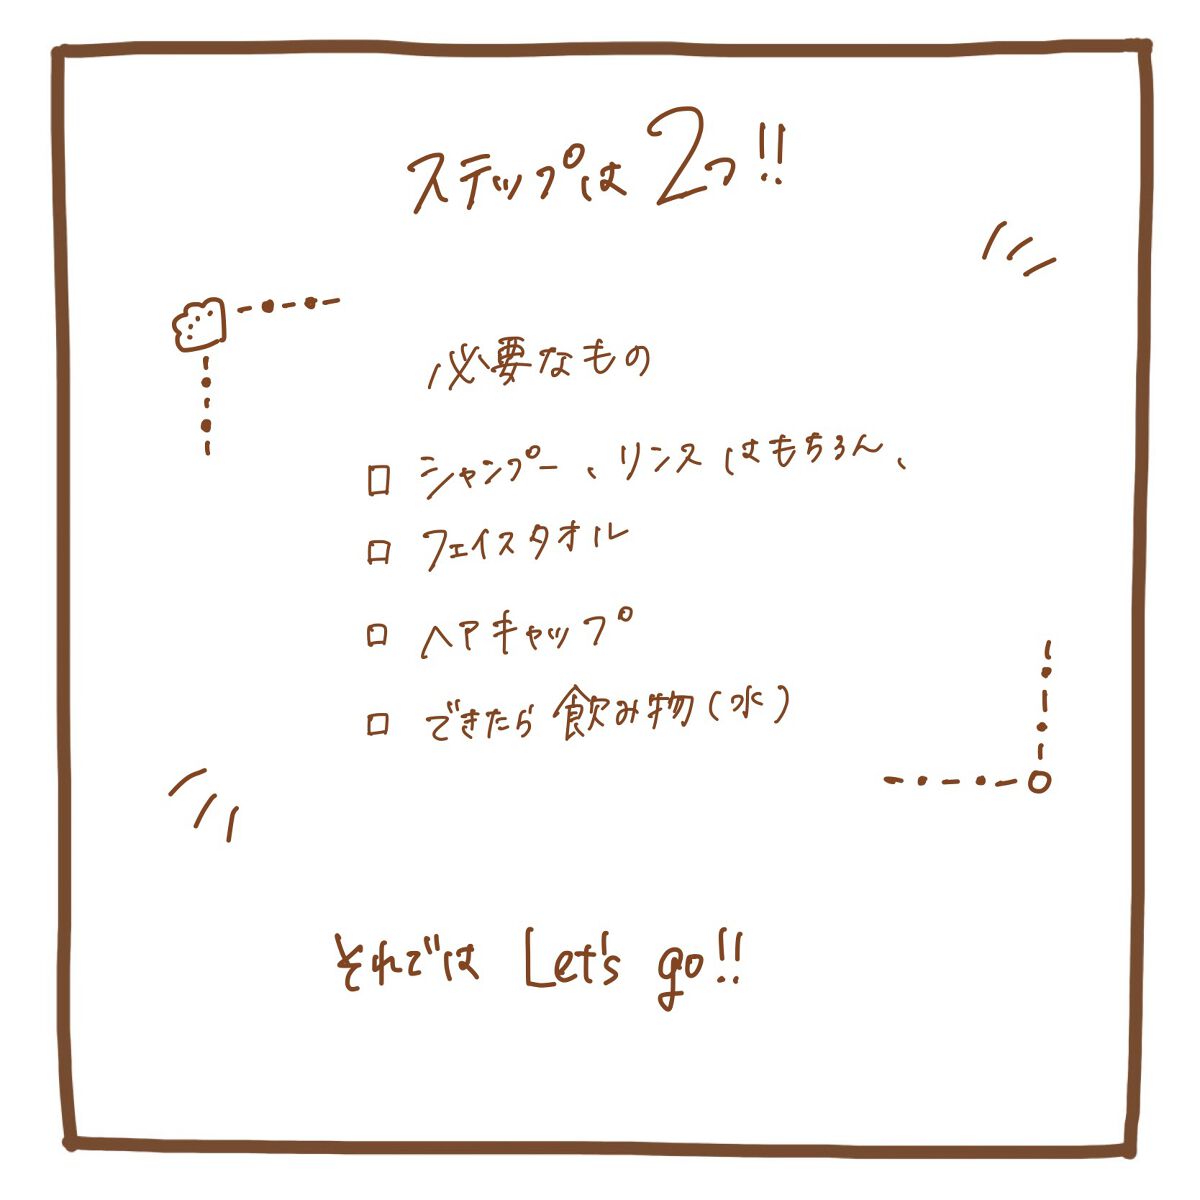 ステップは2つ!!
必要なもの
□ シャンプー、リンスはもちろん、
□ フェイスタオル
□ ヘアキャップ
□ できたら飲み物(水)
それでは Let's go!!